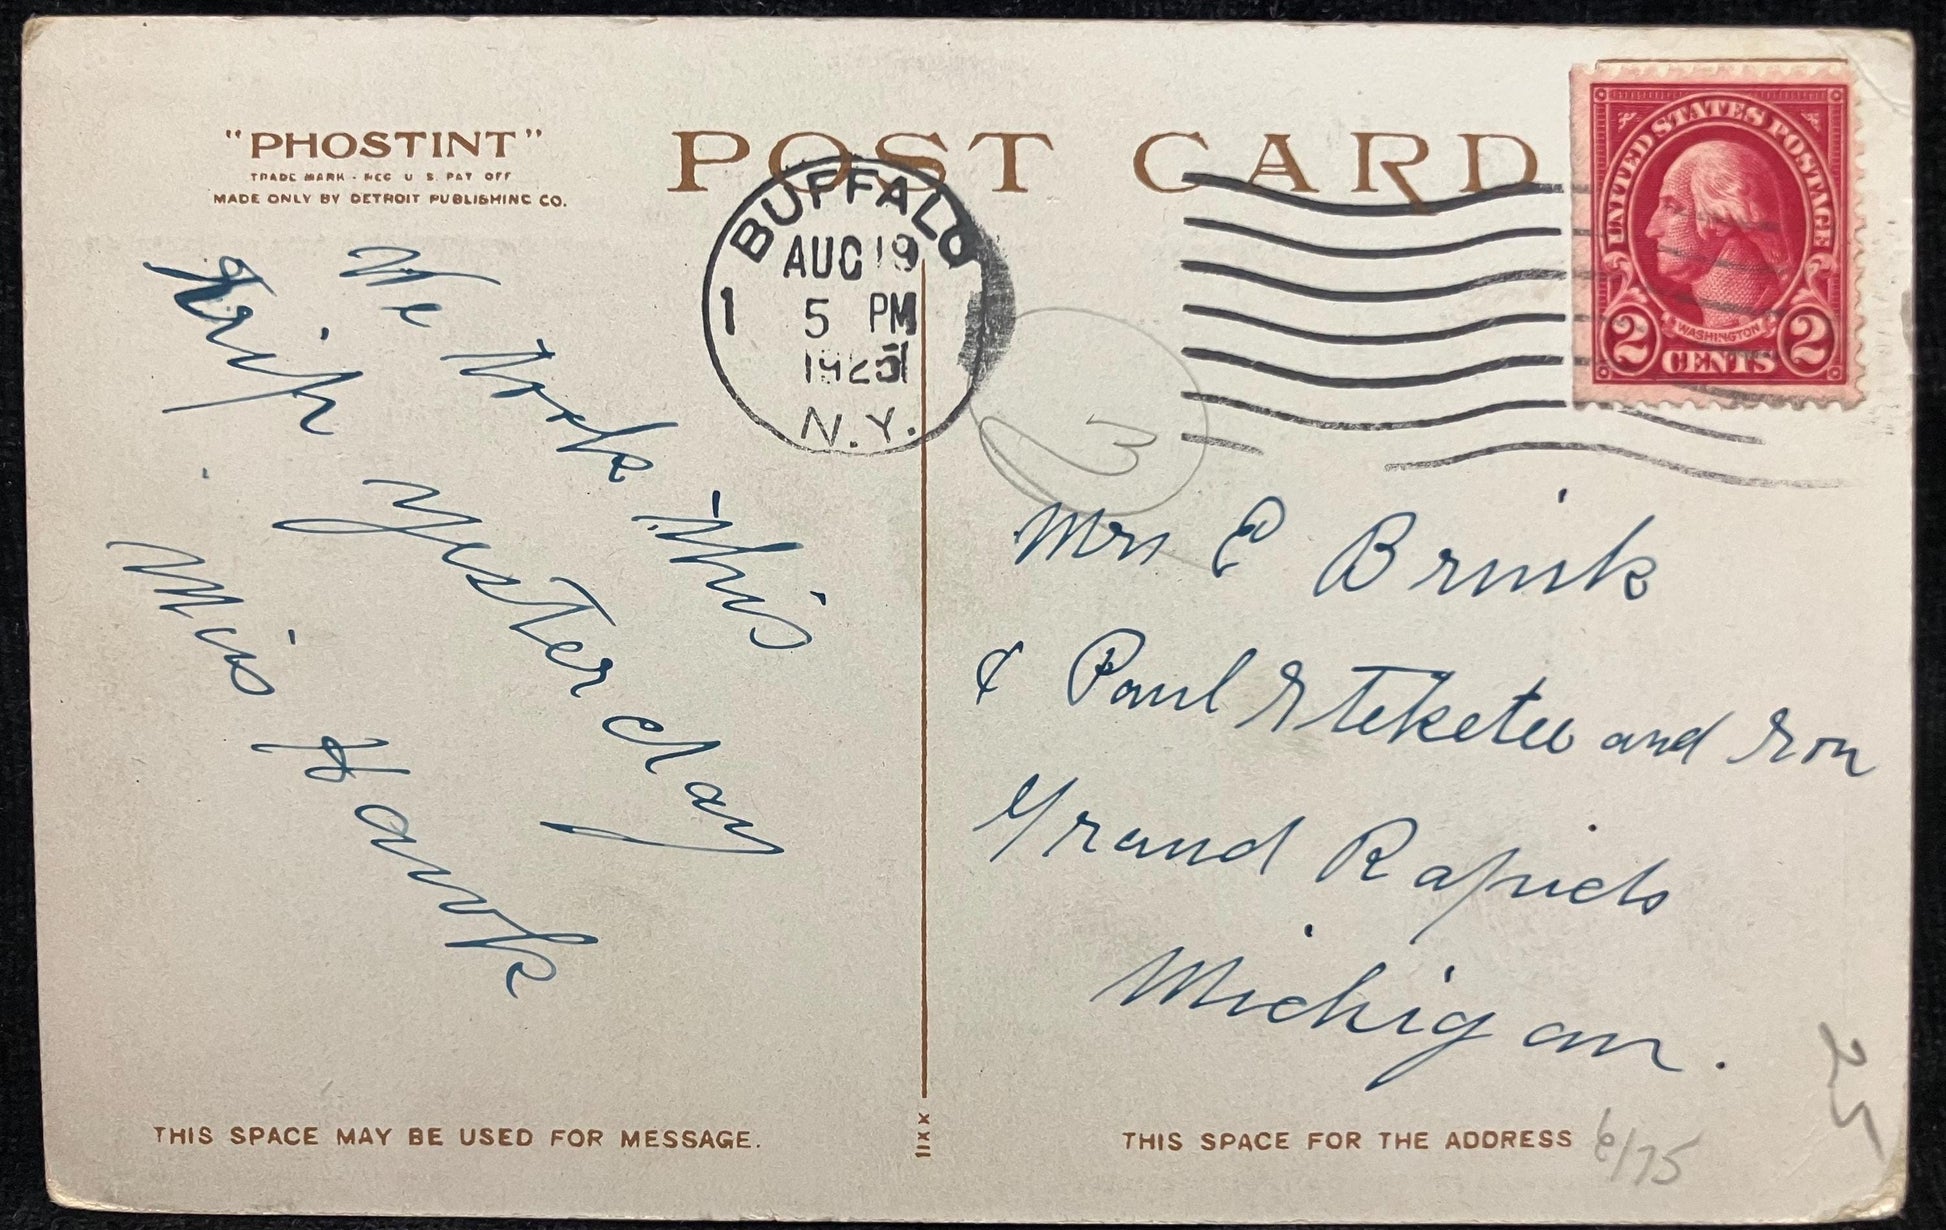 "PHOSTINT"
TRADE MARK - REG U S. PAT OFF
MADE ONLY BY DETROIT PUBLISHING CO.
POST CARD
BUFFALO
AUG 19
1 5 PM
1925
N.Y.
UNITED STATES POSTAGE
WASHINGTON
2 CENTS 2
We took this
trip yesterday
Miss Hawk
3
Mrs E Brink
& Paul Steketee and Son
Grand Rapids
Michigan.
25
6/75
THIS SPACE MAY BE USED FOR MESSAGE.
THIS SPACE FOR THE ADDRESS